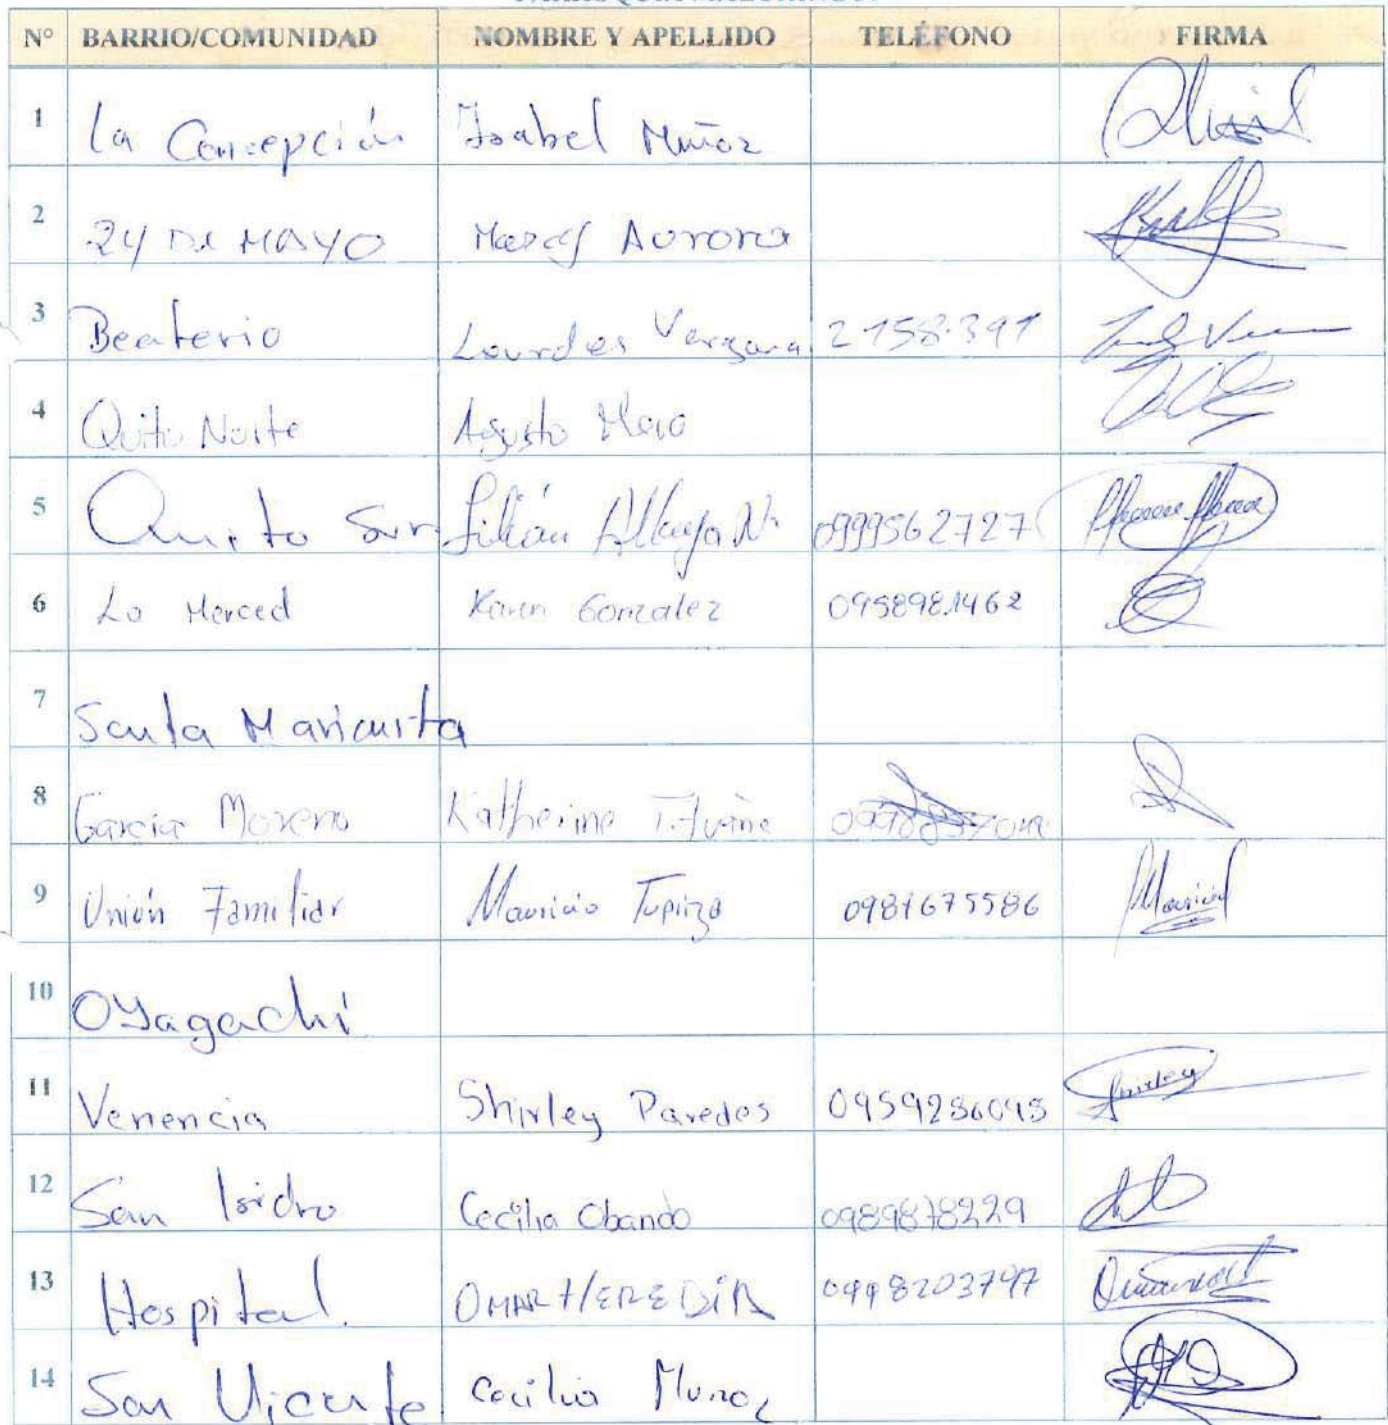 N° BARRIO/COMUNIDAD NOMBRE Y APELLIDO TELÉFONO FIRMA
1 La Concepción Isabel Muñoz
2 24 DE MAYO Aurora
3 Beaterio Lourdes Vergara 2158-391
4 Quito Norte Agusto
5 Quito Sur Lilián N. 0999562727
6 La Merced Karen Gonzalez 0958981462
7 Santa Marianita
8 Garcia Moreno Katherine
9 Unión Familiar Mauricio Tupiza 0981675586 Mauricio
10 OYagachi
11 Venencia Shirley Paredes 0959286095 Shirley
12 San Isidro Cecilia Obando 0989878229
13 Hospital. OMAR HEREDIA 0998203797
14 San Vicente Cecilia Munoz